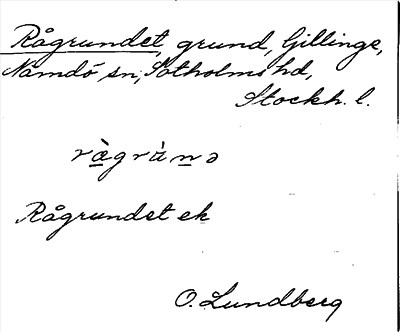 Rågrundet, grund, Gillinge,
Nämdö sn, Sotholms hd,
Stockh. l.
ræ̀grùnə
Rågrundet ek
O. Lundberg